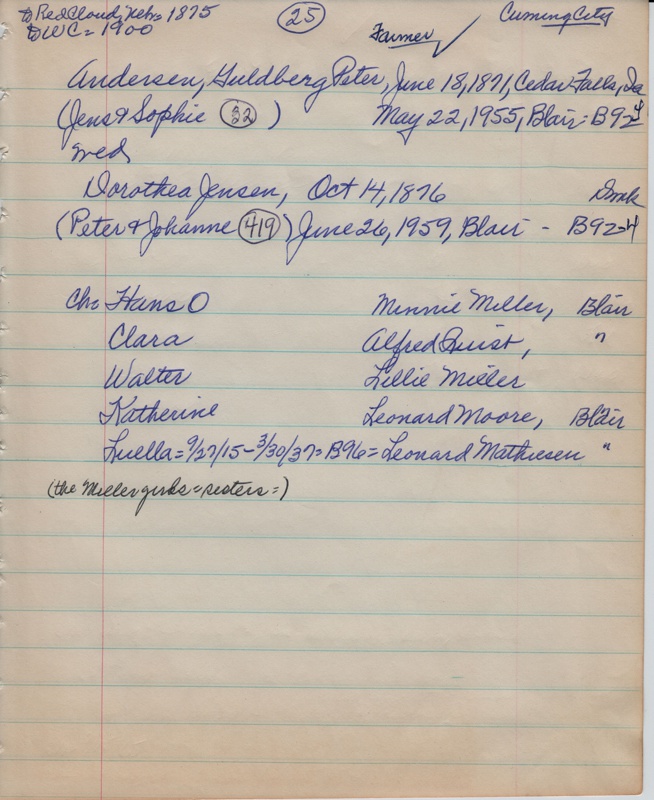 to Red Cloud, Neb = 1875
25
Cuming City
to WC = 1900
Farmer
Andersen, Guldberg Peter, June 18, 1871, Cedar Falls, Ia
(Jens & Sophie 22) May 22, 1955, Blair = B92-4
wed
Dorothea Jensen, Oct 14, 1876 Dmk
(Peter & Johanne 419) June 26, 1959, Blair - B92-4
Ch: Hans O Minnie Meller, Blair
Clara Alfred Quist, "
Walter Lillie Meller
Katherine Leonard Moore, Blair
Luella = 9/27/15 - 3/30/37 = B96 = Leonard Mathiesen "
(the Meller girls = sisters =)